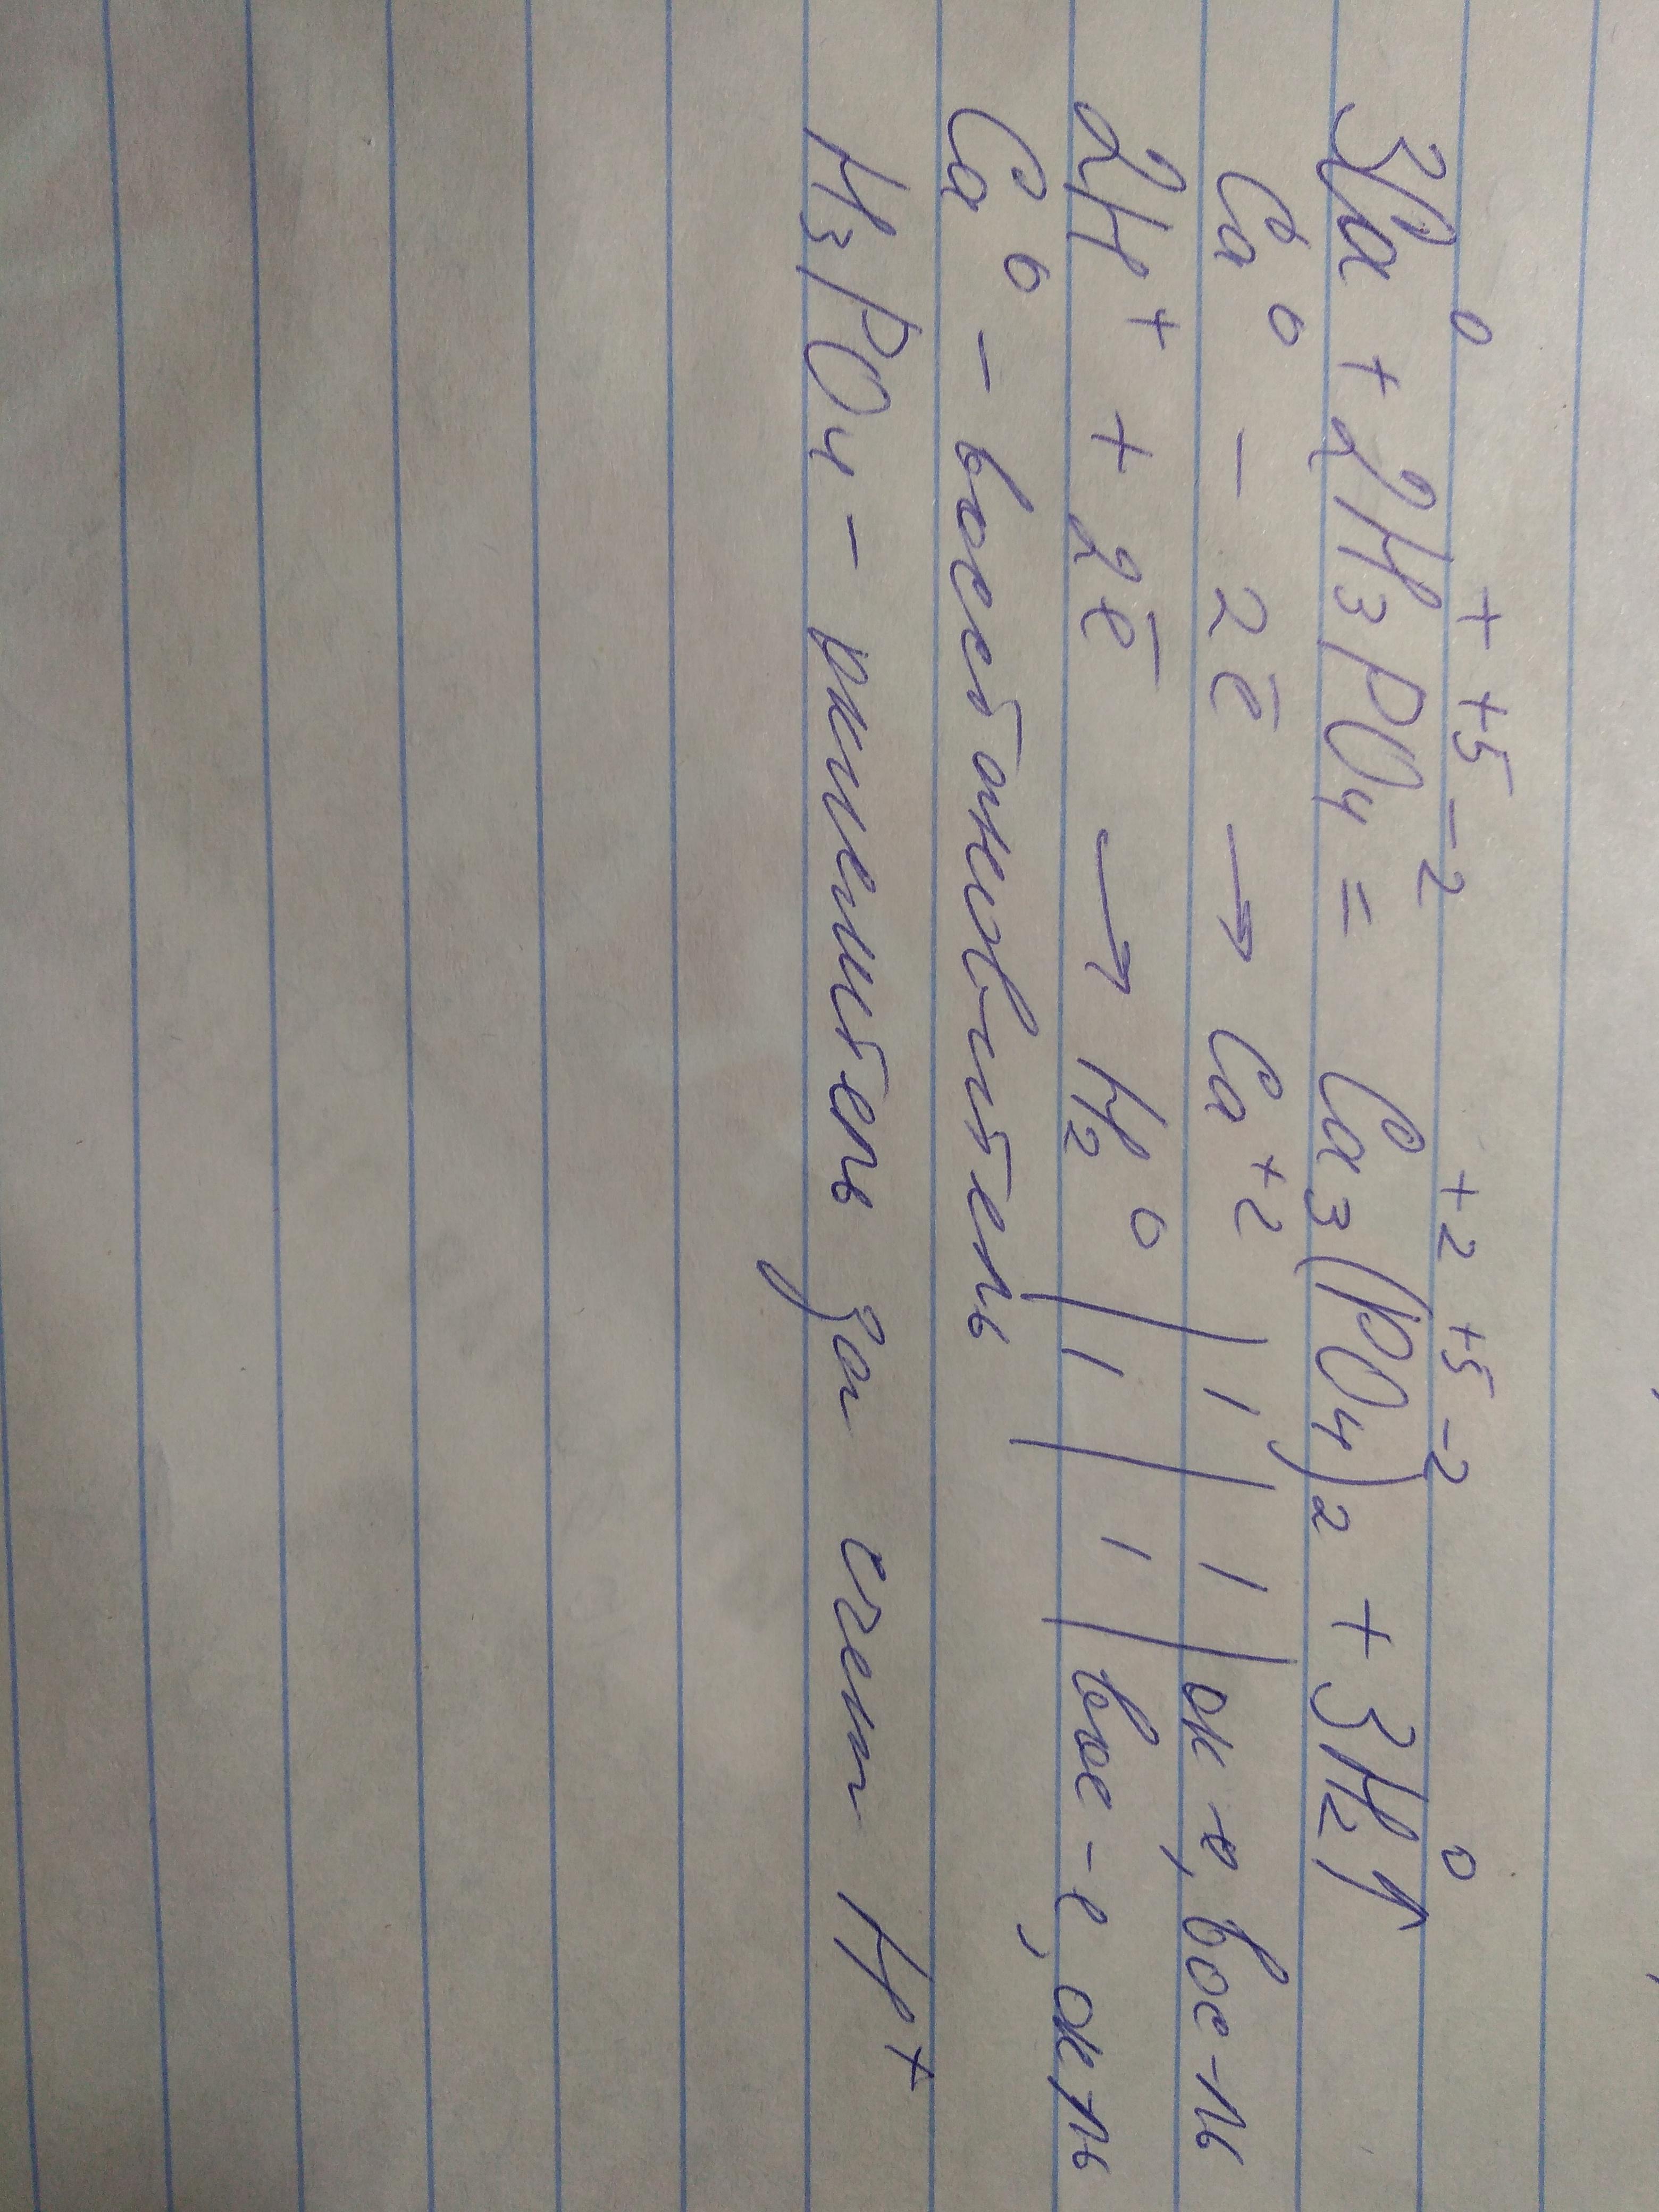 0 + +5 -2 +2 +5 -2 0
3Ca + 2H3PO4 = Ca3(PO4)2 + 3H2↑
Ca⁰ - 2ē → Ca⁺² | 1 | 1 | ок-е, вос-ль
2H⁺ + 2ē → H2⁰ | 1 | 1 | вос-е, ок-ль
Ca⁰ - восстановитель
H3PO4 - окислитель за счет H⁺